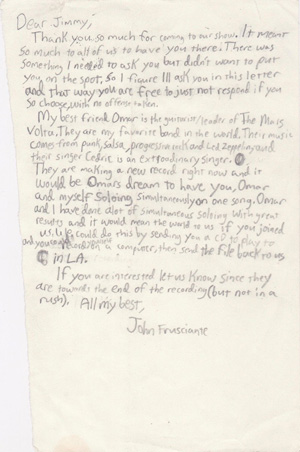 Dear Jimmy,
Thank you so much for coming to our show. It meant
so much to all of us to have you there. There was
something I needed to ask you but didn't want to
put you on the spot, so I figure I'll ask you in this letter
and that way you are free to just not respond if you
so choose, with no offense taken.
My best friend Omar is the guitarist/leader of The Mars
Volta. They are my favorite band in the world. Their music
comes from punk, salsa, progressive rock and Led Zeppelin and
their singer Cedric is an extraordinary singer.
They are making a new record right now and it
would be Omars dream to have you, Omar
and myself soloing simultaneously on one song. Omar
and I have done alot of simultaneous soloing with great
results and it would mean the world to us if you joined
us. We could do this by sending you a CD to play to
and you could record on a computer, then send the file back to us
in LA.
If you are interested let us know since they
are towards the end of the recording (but not in a
rush). All my best,
John Frusciante